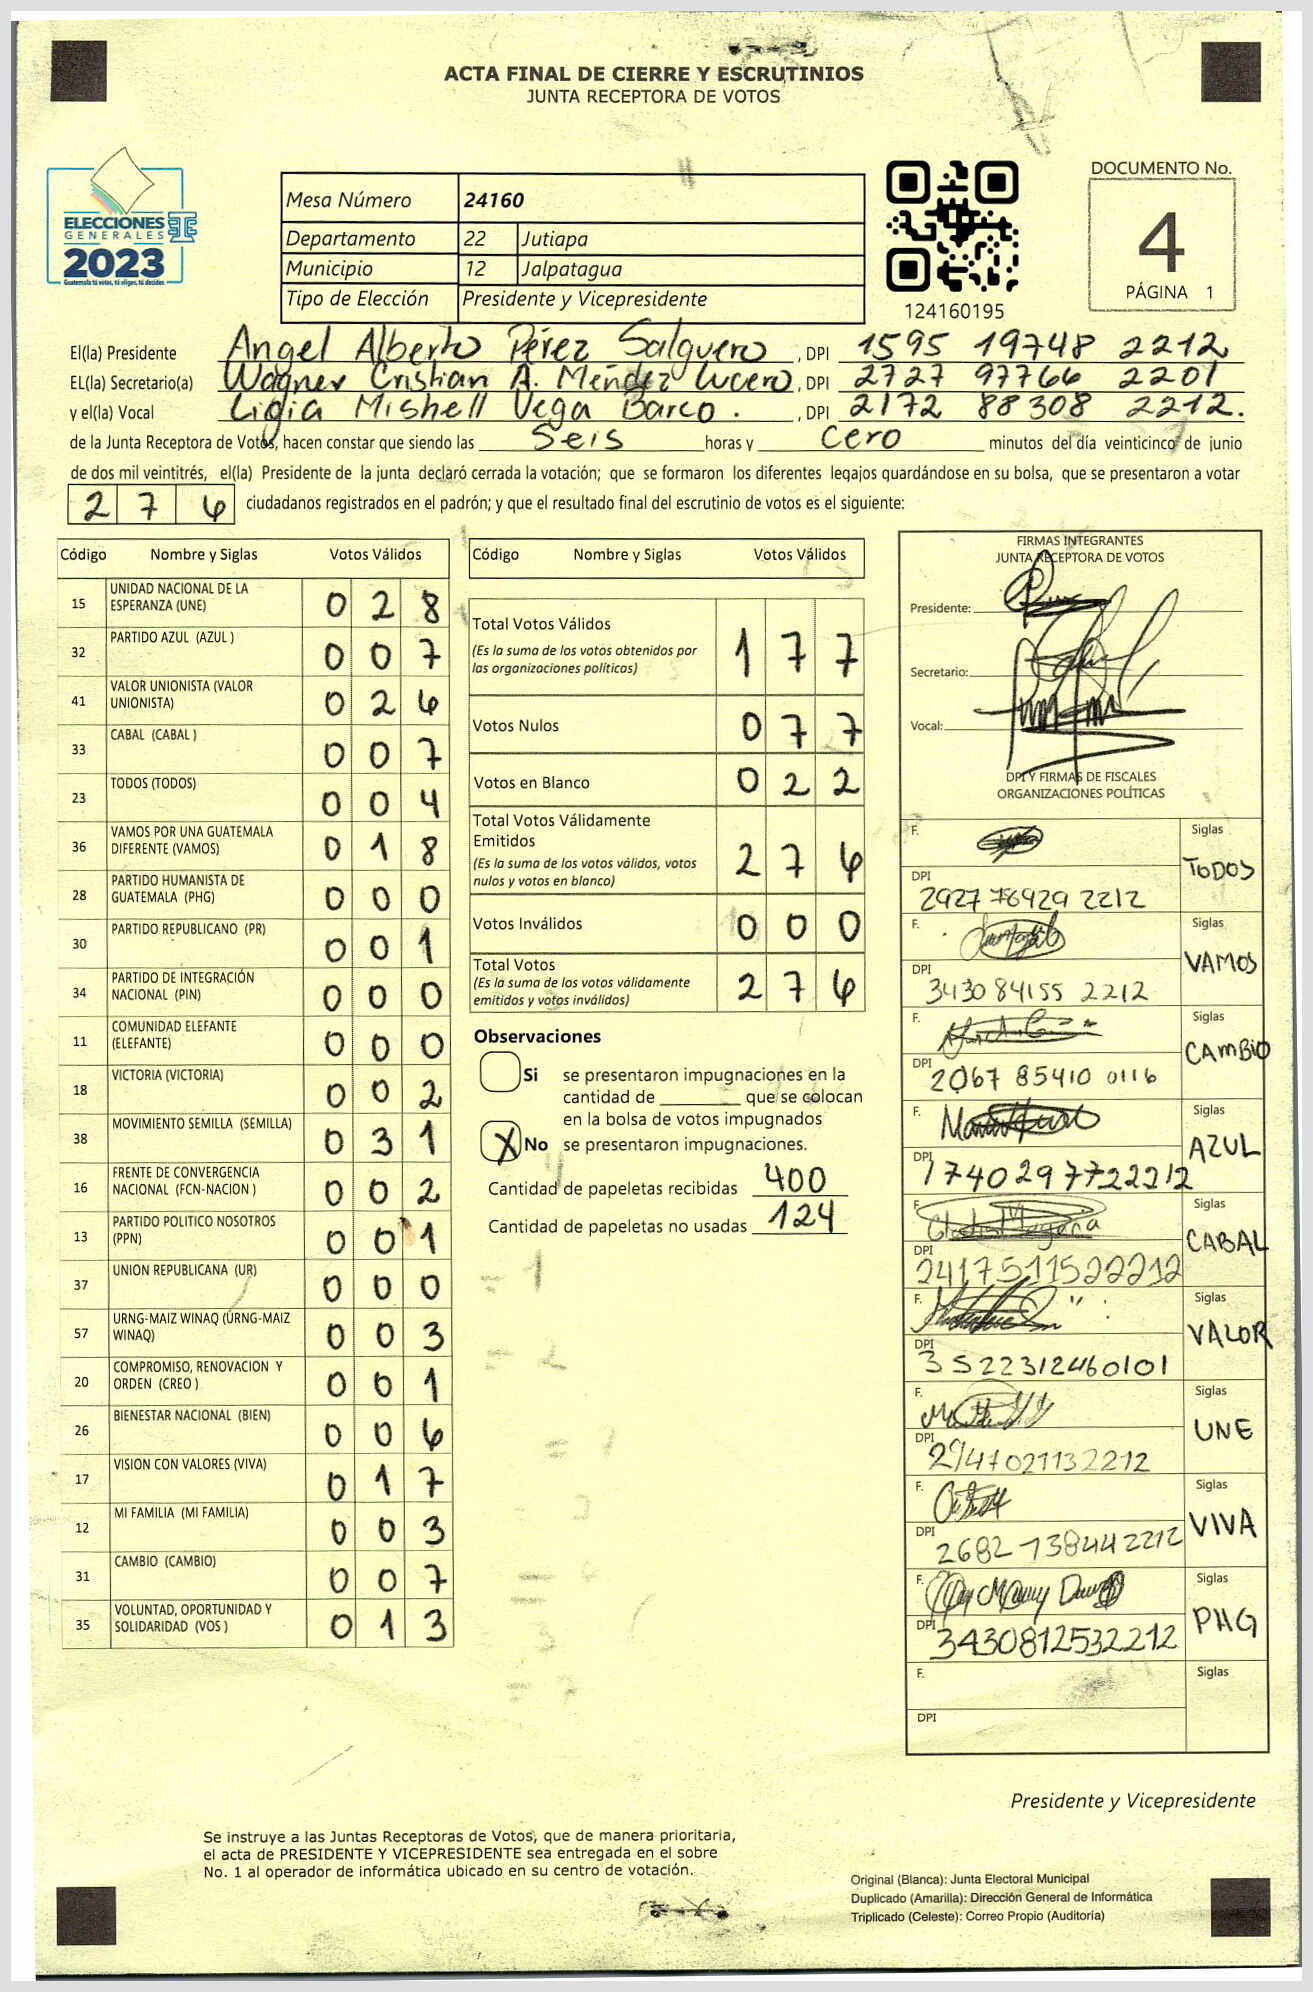 ACTA FINAL DE CIERRE Y ESCRUTINIOS
JUNTA RECEPTORA DE VOTOS
ELECCIONES
GENERALES
2023
Guatemala tú votas, tú eliges, tú decides
Mesa Número 24160
Departamento 22 Jutiapa
Municipio 12 Jalpatagua
Tipo de Elección Presidente y Vicepresidente
124160195
DOCUMENTO No.
4
PÁGINA 1
El(la) Presidente Angel Alberto Pérez Salguero, DPI 1595 19748 2212
EL(la) Secretario(a) Wagner Cristian A. Méndez Lucero, DPI 2727 97766 2201
y el(la) Vocal Ligia Mishell Vega Barco. , DPI 2172 88308 2212.
de la Junta Receptora de Votos, hacen constar que siendo las Seis horas y Cero minutos del día veinticinco de junio
de dos mil veintitrés, el(la) Presidente de la junta declaró cerrada la votación; que se formaron los diferentes legajos guardándose en su bolsa, que se presentaron a votar
2 7 6 ciudadanos registrados en el padrón; y que el resultado final del escrutinio de votos es el siguiente:
Código Nombre y Siglas Votos Válidos
15 UNIDAD NACIONAL DE LA ESPERANZA (UNE) 0 2 8
32 PARTIDO AZUL (AZUL ) 0 0 7
41 VALOR UNIONISTA (VALOR UNIONISTA) 0 2 6
33 CABAL (CABAL ) 0 0 7
23 TODOS (TODOS) 0 0 4
36 VAMOS POR UNA GUATEMALA DIFERENTE (VAMOS) 0 1 8
28 PARTIDO HUMANISTA DE GUATEMALA (PHG) 0 0 0
30 PARTIDO REPUBLICANO (PR) 0 0 1
34 PARTIDO DE INTEGRACIÓN NACIONAL (PIN) 0 0 0
11 COMUNIDAD ELEFANTE (ELEFANTE) 0 0 0
18 VICTORIA (VICTORIA) 0 0 2
38 MOVIMIENTO SEMILLA (SEMILLA) 0 3 1
16 FRENTE DE CONVERGENCIA NACIONAL (FCN-NACION ) 0 0 2
13 PARTIDO POLITICO NOSOTROS (PPN) 0 0 1
37 UNION REPUBLICANA (UR) 0 0 0
57 URNG-MAIZ WINAQ (URNG-MAIZ WINAQ) 0 0 3
20 COMPROMISO, RENOVACION Y ORDEN (CREO ) 0 0 1
26 BIENESTAR NACIONAL (BIEN) 0 0 6
17 VISION CON VALORES (VIVA) 0 1 7
12 MI FAMILIA (MI FAMILIA) 0 0 3
31 CAMBIO (CAMBIO) 0 0 7
35 VOLUNTAD, OPORTUNIDAD Y SOLIDARIDAD (VOS ) 0 1 3
Código Nombre y Siglas Votos Válidos
Total Votos Válidos 1 7 7
(Es la suma de los votos obtenidos por
las organizaciones políticas)
Votos Nulos 0 7 7
Votos en Blanco 0 2 2
Total Votos Válidamente
Emitidos 2 7 6
(Es la suma de los votos válidos, votos
nulos y votos en blanco)
Votos Inválidos 0 0 0
Total Votos 2 7 6
(Es la suma de los votos válidamente
emitidos y votos inválidos)
Observaciones
Si se presentaron impugnaciones en la
cantidad de ________ que se colocan
en la bolsa de votos impugnados
X No se presentaron impugnaciones.
Cantidad de papeletas recibidas 400
Cantidad de papeletas no usadas 124
FIRMAS INTEGRANTES
JUNTA RECEPTORA DE VOTOS
Presidente:
Secretario:
Vocal:
DPI Y FIRMAS DE FISCALES
ORGANIZACIONES POLÍTICAS
F. Siglas TODOS
DPI 2927 78929 2212
F. Siglas VAMOS
DPI 3430 84155 2212
F. Siglas CAMBIO
DPI 2067 85410 0116
F. Siglas AZUL
DPI 1740297722212
F. Siglas CABAL
DPI 2417511522212
F. Siglas VALOR
DPI 3522312460101
F. Siglas UNE
DPI 2947021132212
F. Siglas VIVA
DPI 2682 738442212
F. Siglas PHG
DPI 3430812532212
F. Siglas
DPI
Presidente y Vicepresidente
Se instruye a las Juntas Receptoras de Votos, que de manera prioritaria,
el acta de PRESIDENTE Y VICEPRESIDENTE sea entregada en el sobre
No. 1 al operador de informática ubicado en su centro de votación.
Original (Blanca): Junta Electoral Municipal
Duplicado (Amarilla): Dirección General de Informática
Triplicado (Celeste): Correo Propio (Auditoría)